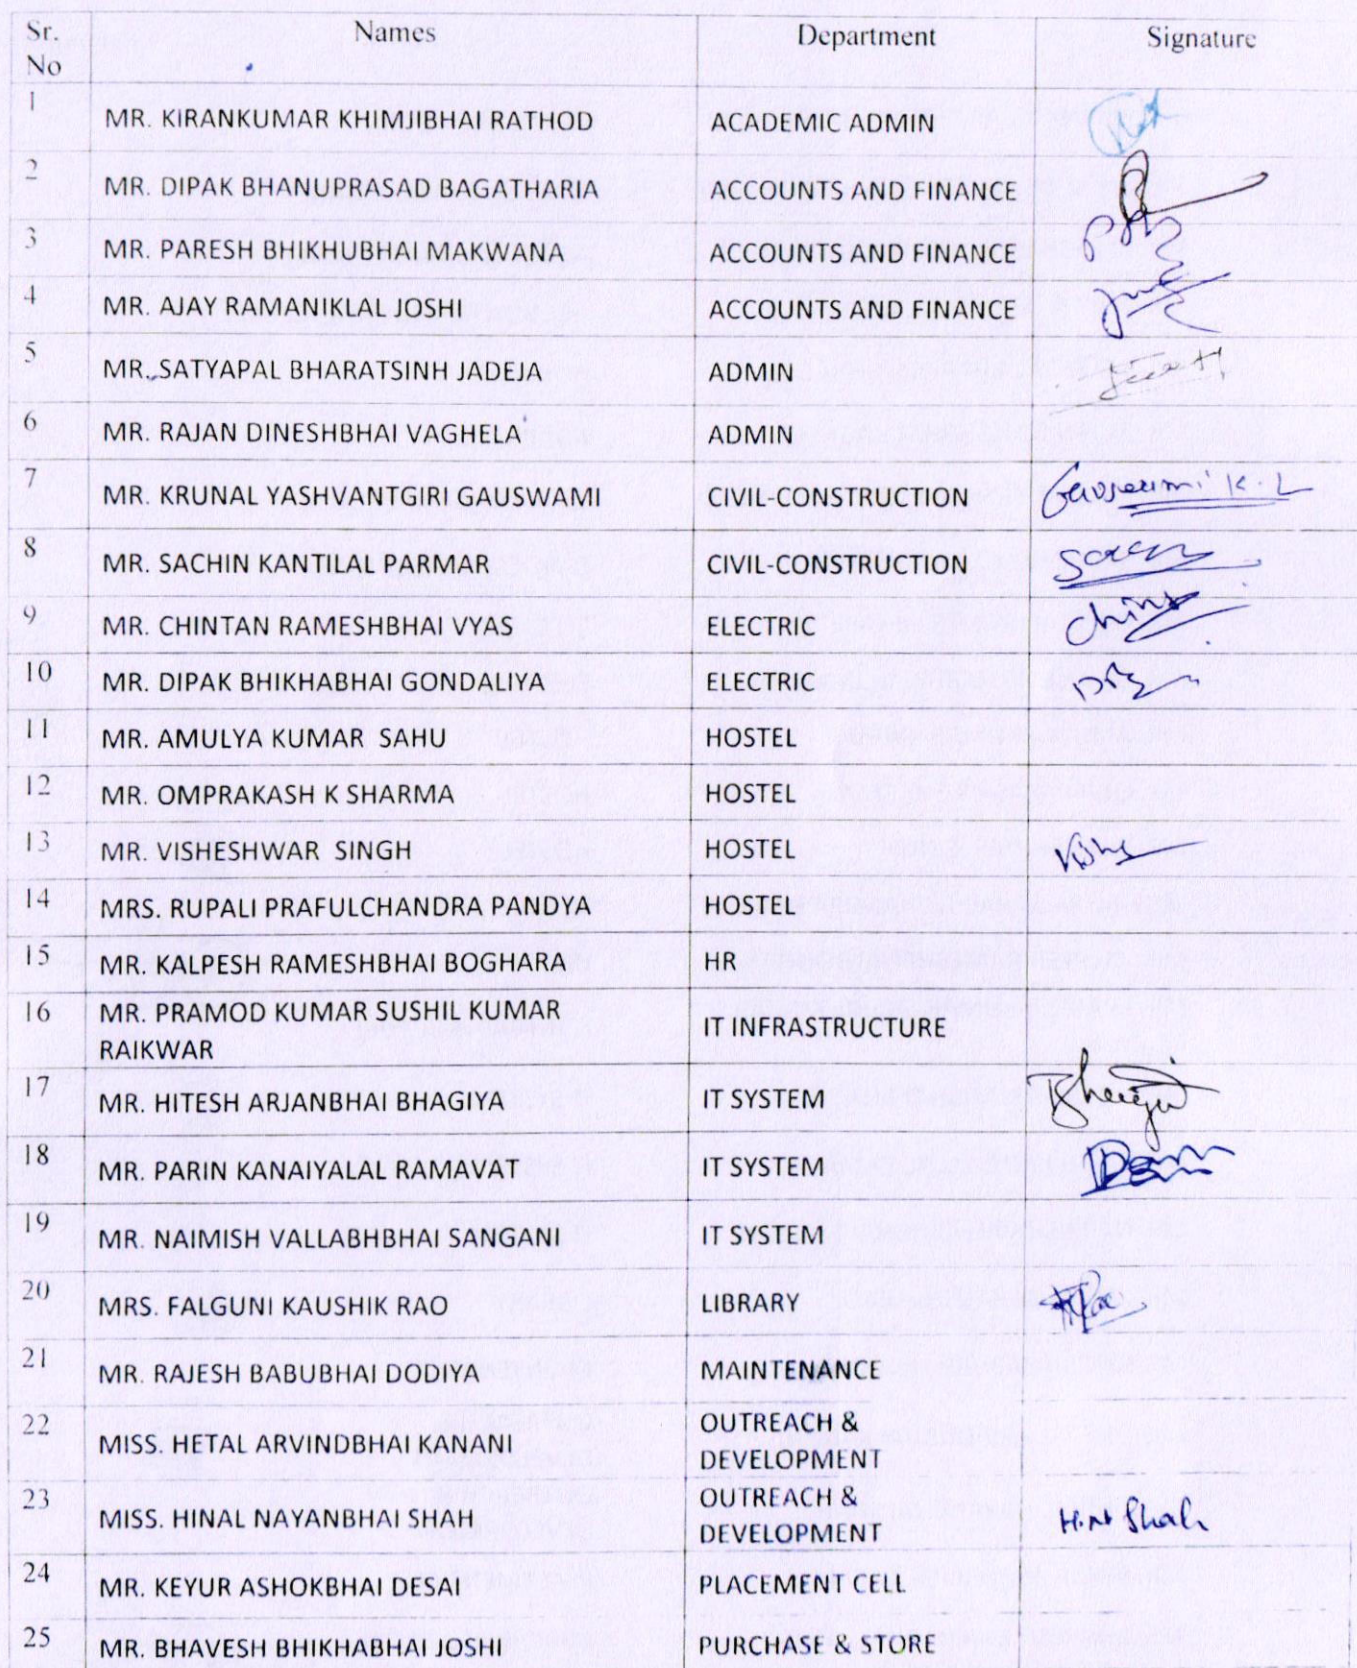 Sr. No Names Department Signature
1 MR. KIRANKUMAR KHIMJIBHAI RATHOD ACADEMIC ADMIN
2 MR. DIPAK BHANUPRASAD BAGATHARIA ACCOUNTS AND FINANCE
3 MR. PARESH BHIKHUBHAI MAKWANA ACCOUNTS AND FINANCE
4 MR. AJAY RAMANIKLAL JOSHI ACCOUNTS AND FINANCE
5 MR. SATYAPAL BHARATSINH JADEJA ADMIN
6 MR. RAJAN DINESHBHAI VAGHELA ADMIN
7 MR. KRUNAL YASHVANTGIRI GAUSWAMI CIVIL-CONSTRUCTION
8 MR. SACHIN KANTILAL PARMAR CIVIL-CONSTRUCTION
9 MR. CHINTAN RAMESHBHAI VYAS ELECTRIC
10 MR. DIPAK BHIKHABHAI GONDALIYA ELECTRIC
11 MR. AMULYA KUMAR SAHU HOSTEL
12 MR. OMPRAKASH K SHARMA HOSTEL
13 MR. VISHESHWAR SINGH HOSTEL
14 MRS. RUPALI PRAFULCHANDRA PANDYA HOSTEL
15 MR. KALPESH RAMESHBHAI BOGHARA HR
16 MR. PRAMOD KUMAR SUSHIL KUMAR
RAIKWAR IT INFRASTRUCTURE
17 MR. HITESH ARJANBHAI BHAGIYA IT SYSTEM
18 MR. PARIN KANAIYALAL RAMAVAT IT SYSTEM
19 MR. NAIMISH VALLABHBHAI SANGANI IT SYSTEM
20 MRS. FALGUNI KAUSHIK RAO LIBRARY
21 MR. RAJESH BABUBHAI DODIYA MAINTENANCE
22 MISS. HETAL ARVINDBHAI KANANI OUTREACH &
DEVELOPMENT
23 MISS. HINAL NAYANBHAI SHAH OUTREACH &
DEVELOPMENT Shah
24 MR. KEYUR ASHOKBHAI DESAI PLACEMENT CELL
25 MR. BHAVESH BHIKHABHAI JOSHI PURCHASE & STORE